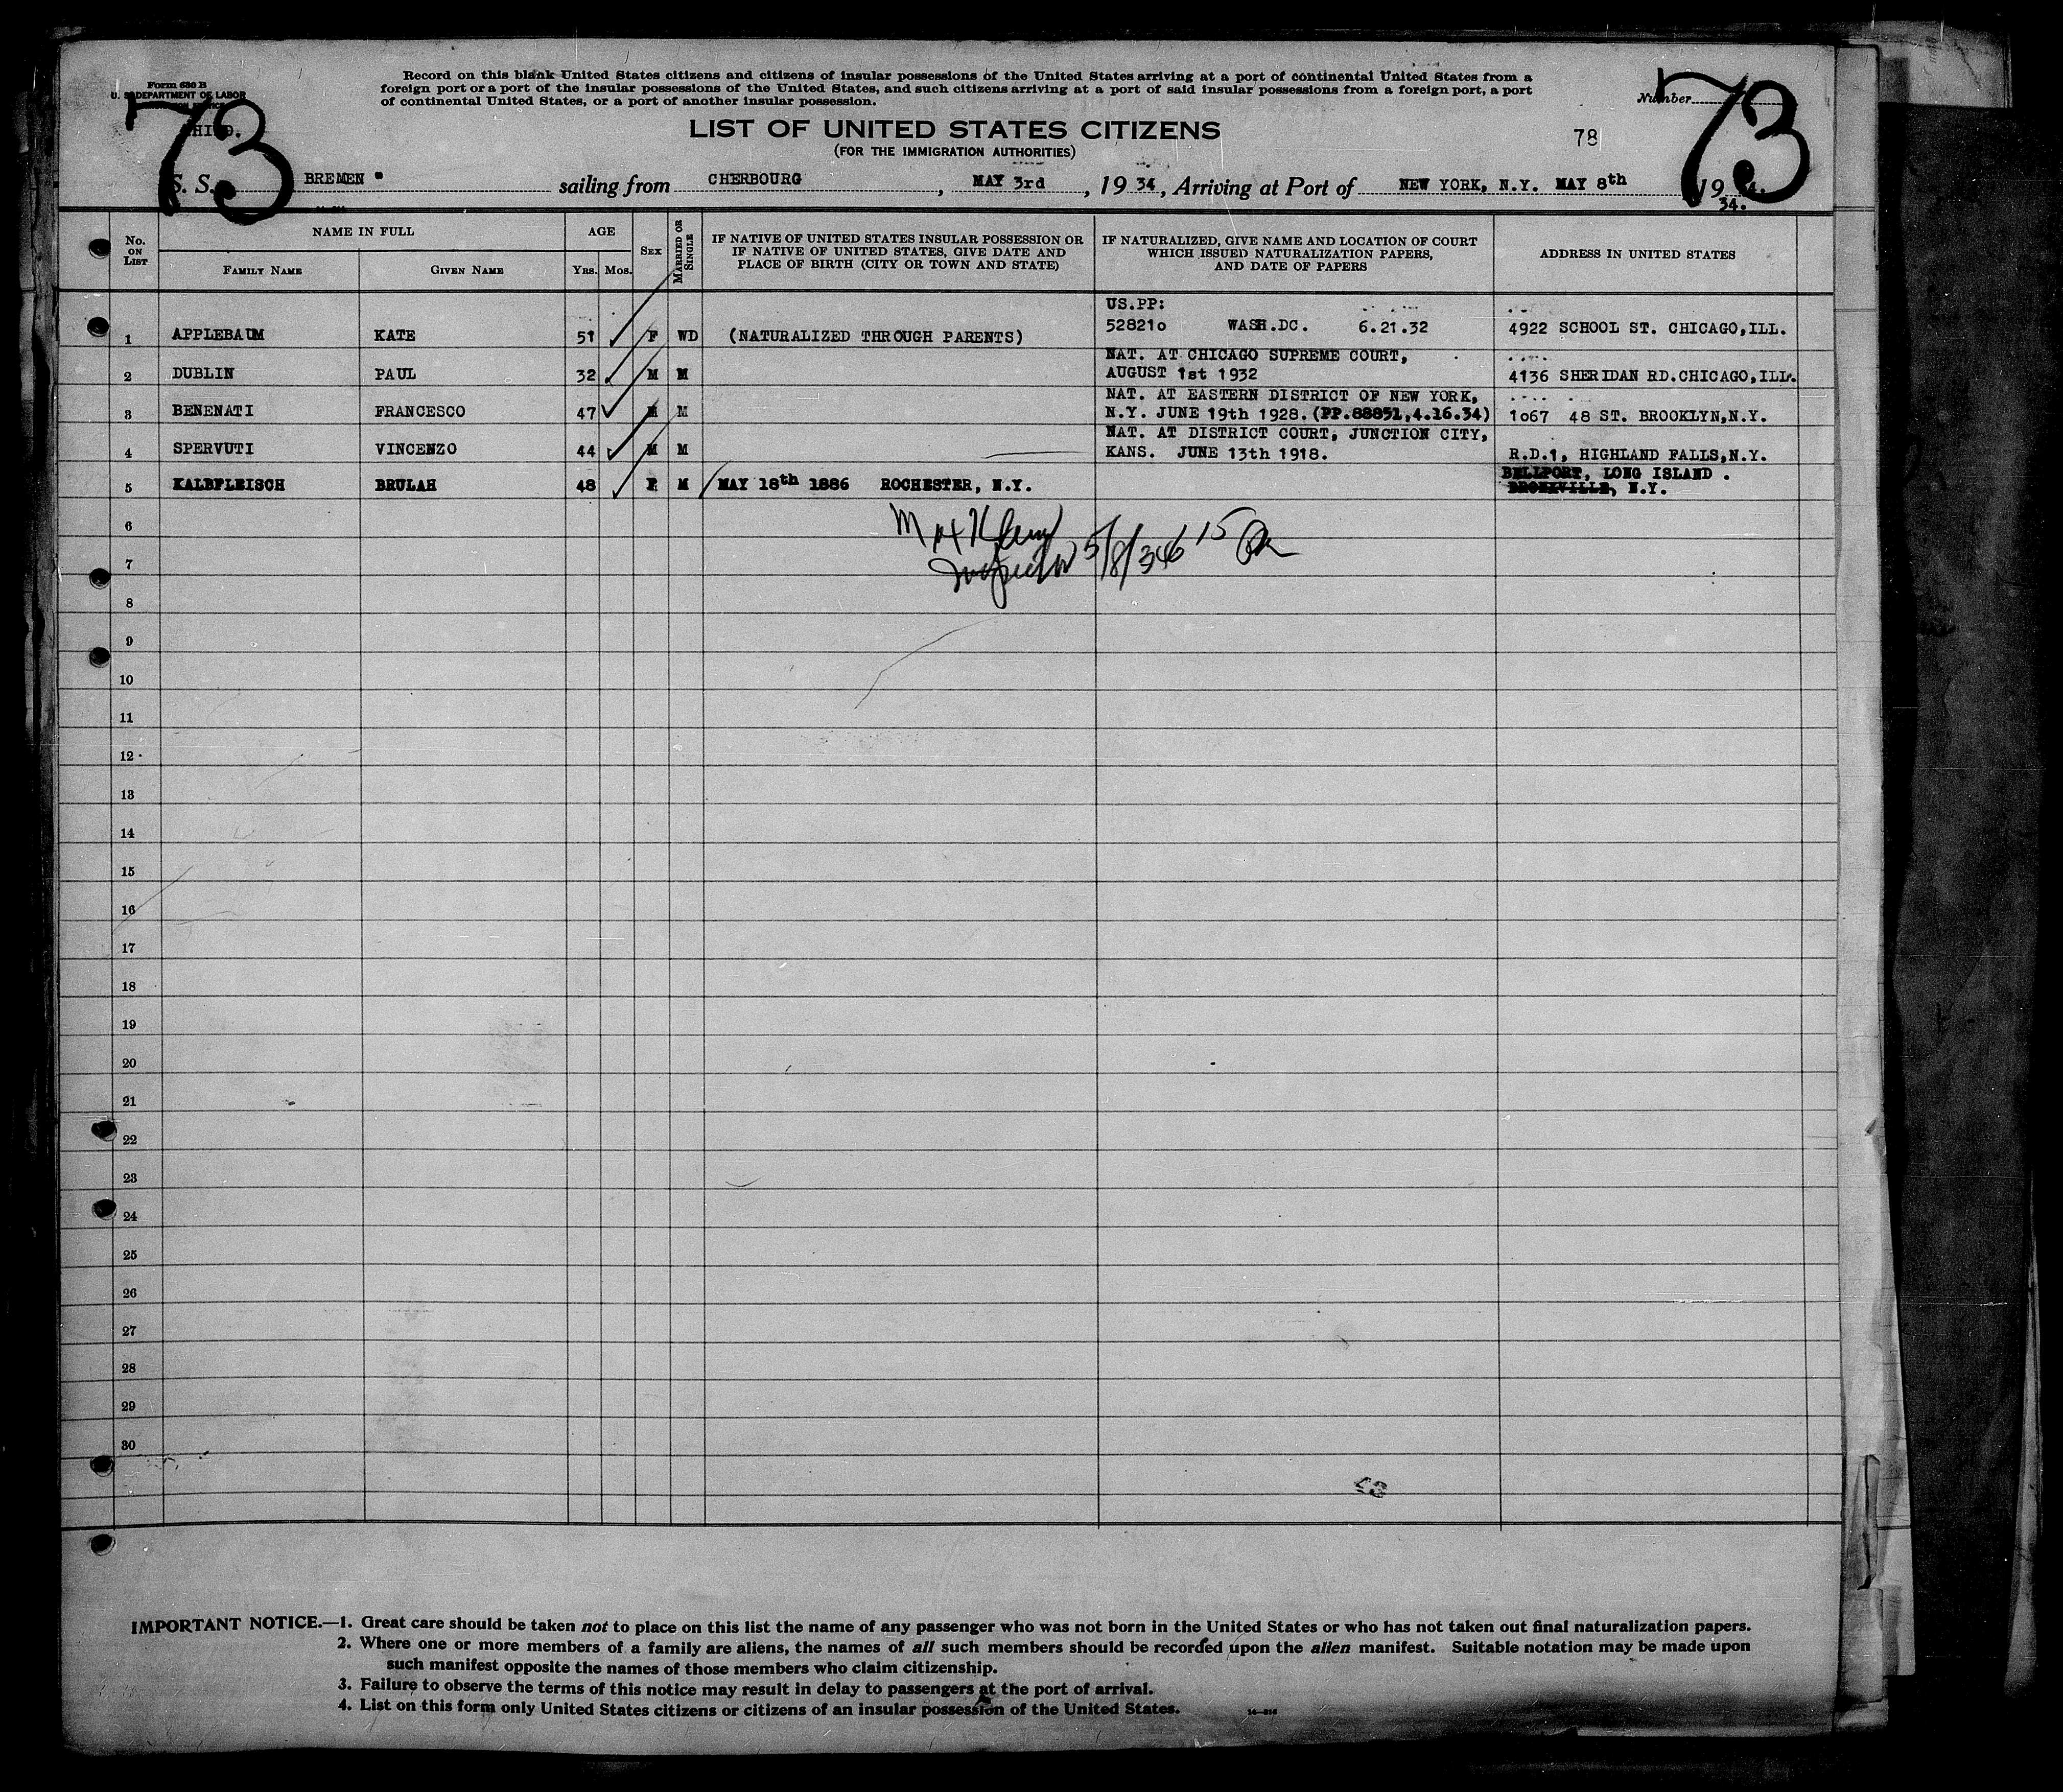 Form 630 B
U. S. DEPARTMENT OF LABOR
73
THIRD.
Record on this blank United States citizens and citizens of insular possessions of the United States arriving at a port of continental United States from a
foreign port or a port of the insular possessions of the United States, and such citizens arriving at a port of said insular possessions from a foreign port, a port
of continental United States, or a port of another insular possession.
Number
73
LIST OF UNITED STATES CITIZENS
(FOR THE IMMIGRATION AUTHORITIES)
78
S. S. BREMEN " sailing from CHERBOURG, MAY 3rd, 19 34, Arriving at Port of NEW YORK, N.Y. MAY 8th 19
34.
No. ON LIST NAME IN FULL AGE SEX MARRIED OR SINGLE
FAMILY NAME GIVEN NAME YRS. MOS.
IF NATIVE OF UNITED STATES INSULAR POSSESSION OR
IF NATIVE OF UNITED STATES, GIVE DATE AND
PLACE OF BIRTH (CITY OR TOWN AND STATE)
IF NATURALIZED, GIVE NAME AND LOCATION OF COURT
WHICH ISSUED NATURALIZATION PAPERS,
AND DATE OF PAPERS
ADDRESS IN UNITED STATES
US.PP:
1 APPLEBAUM KATE 51 F WD (NATURALIZED THROUGH PARENTS) 528210 WASH.DC. 6.21.32 4922 SCHOOL ST. CHICAGO,ILL.
NAT. AT CHICAGO SUPREME COURT,
2 DUBLIN PAUL 32 M M AUGUST 1st 1932 4136 SHERIDAN RD.CHICAGO,ILL.
NAT. AT EASTERN DISTRICT OF NEW YORK,
3 BENENATI FRANCESCO 47 M M N.Y. JUNE 19th 1928. (PP.88851,4.16.34) 1067 48 ST. BROOKLYN,N.Y.
NAT. AT DISTRICT COURT, JUNCTION CITY,
4 SPERVUTI VINCENZO 44 M M KANS. JUNE 13th 1918. R.D.1, HIGHLAND FALLS,N.Y.
BELLPORT, LONG ISLAND .
5 KALBFLEISCH BRULAH 48 F M MAY 18th 1886 ROCHESTER, N.Y. BRONXVILLE, N.Y.
6
Inspector 5/8/34
7
8
9
10
11
12
13
14
15
16
17
18
19
20
21
22
23
24
25
26
27
28
29
30
IMPORTANT NOTICE.—1. Great care should be taken not to place on this list the name of any passenger who was not born in the United States or who has not taken out final naturalization papers.
2. Where one or more members of a family are aliens, the names of all such members should be recorded upon the alien manifest. Suitable notation may be made upon
such manifest opposite the names of those members who claim citizenship.
3. Failure to observe the terms of this notice may result in delay to passengers at the port of arrival.
4. List on this form only United States citizens or citizens of an insular possession of the United States.